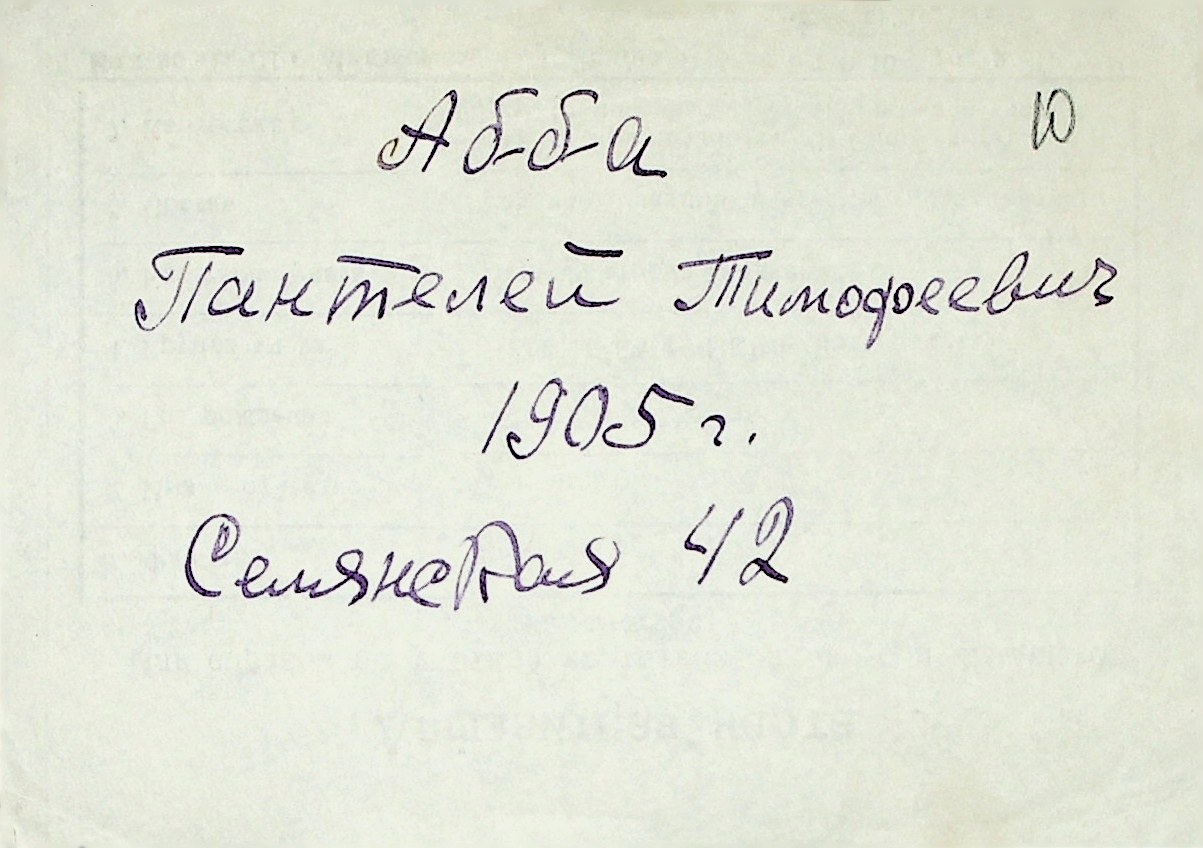 Абба
10
Пантелей Тимофеевич
1905 г.
Семянская 42